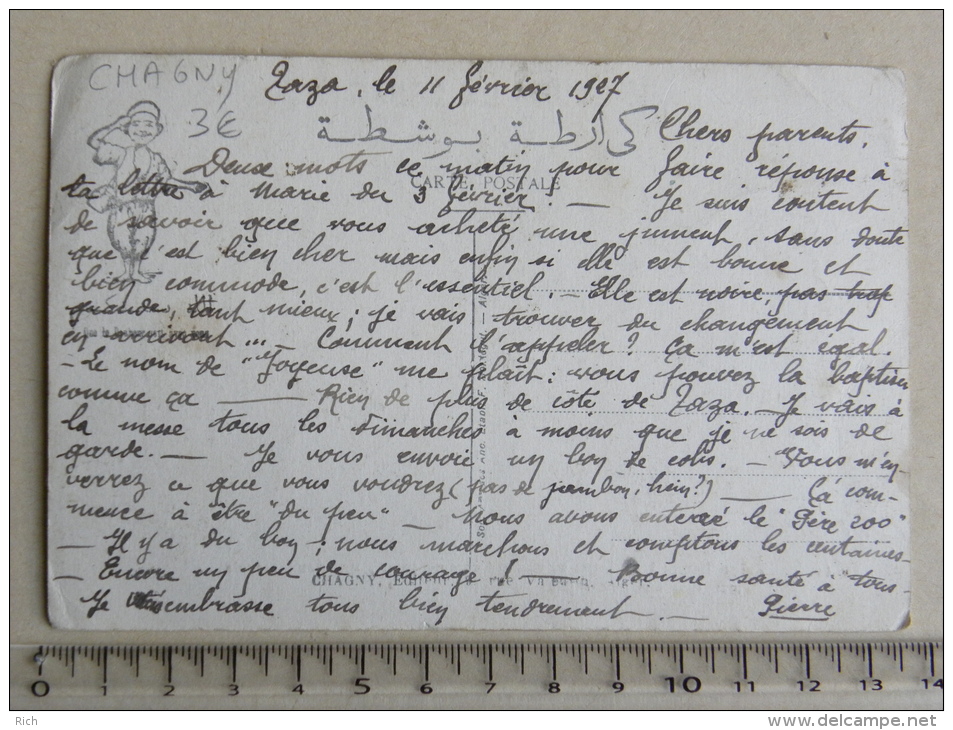 CHAGNY
3€
Taza, le 11 février 1927
كارطة بوشطة
Chers parents,
Deux mots ce matin pour faire réponse à
CARTE POSTALE
ta lettre à Marie du 3 février! — Je suis content
de savoir que vous acheté une jument, sans doute
que c'est bien cher mais enfin si elle est bonne et
bien commode, c'est l'essentiel. — Elle est noire, pas trop
grande, tant mieux; je vais trouver du changement
en arrivant ... — Comment l'appeler? Ça m'est égal.
- Le nom de "Joyeuse" me plaît: vous pouvez la baptiser
comme ça —— Rien de plus de côté de Taza. — Je vais à
la messe tous les dimanches à moins que je ne sois de
garde. — Je vous envoie un bon de colis. — Vous m'en
verrez ce que vous voudrez (pas de jambon, hein?) —— Ça com-
mence à être "du peu" — Nous avons enterré le "Père 200"
— Il y a du bon; nous marchons et comptons les centaines -
- Encore un peu de courage! —— Bonne santé à tous -
CHAGNY,
Je embrasse tous bien tendrement. — Pierre
0 1 2 3 4 5 6 7 8 9 10 11 12 13 14
Rich
http://www.delcampe.net